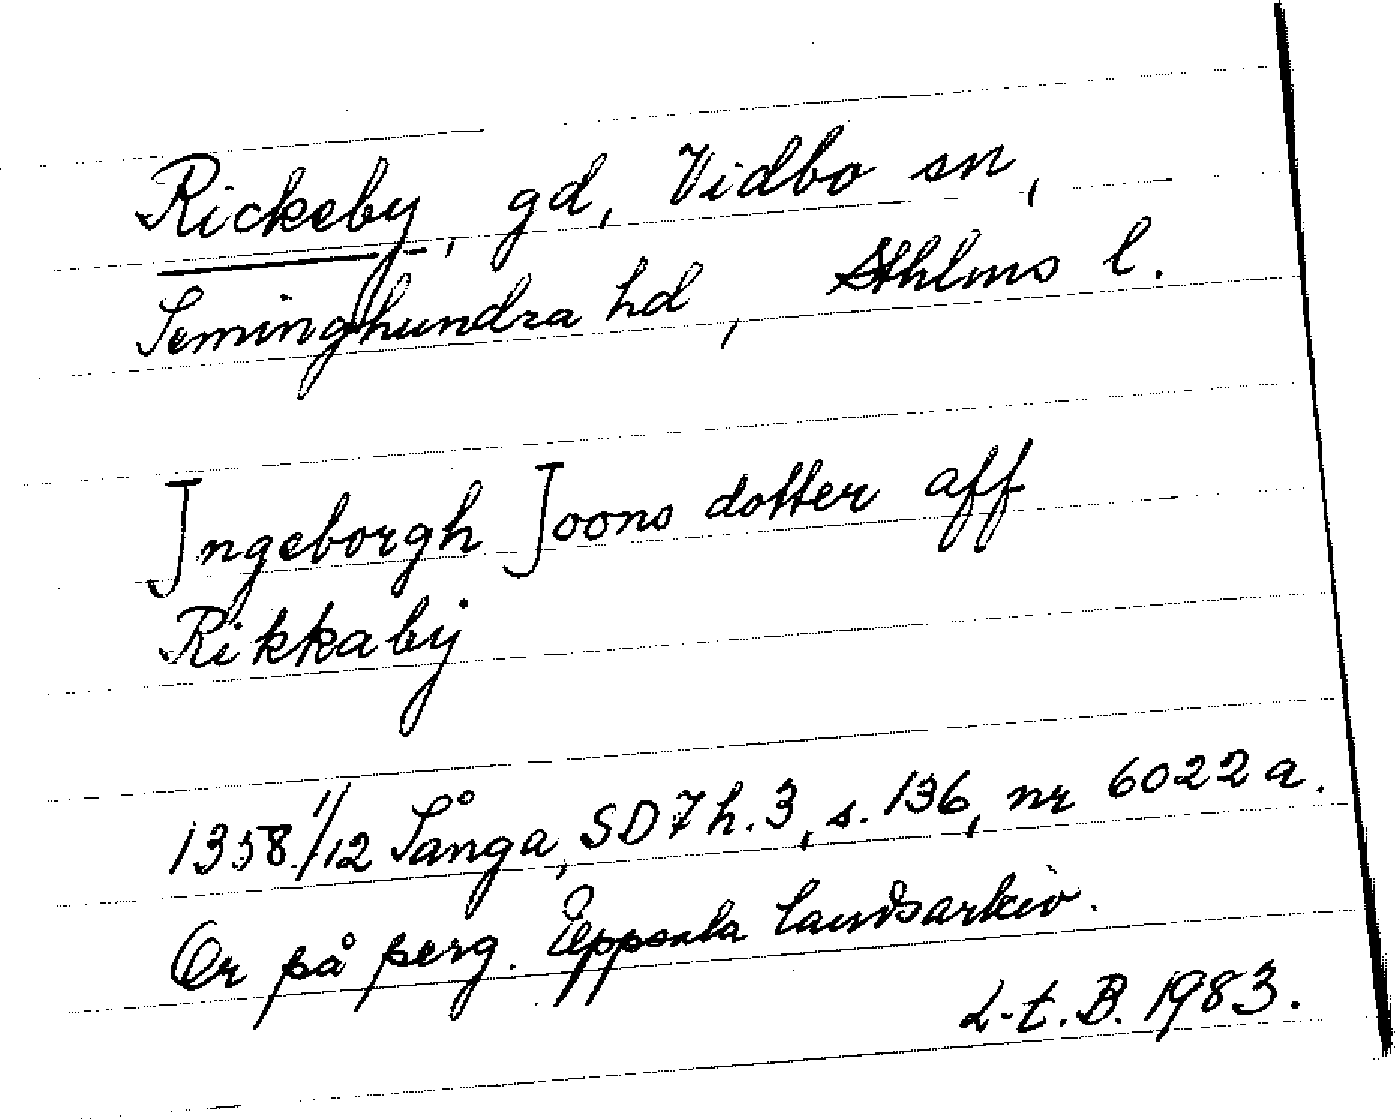 Rickeby, gd, Vidbo sn,
Seminghundra hd, Sthlms l.
Ingeborgh Joons dotter aff
Rikkaby
1358 1/12 Sånga, SD 7 h. 3, s. 136, nr 6022 a.
Or på perg. Uppsala landsarkiv.
L-t. B. 1983.